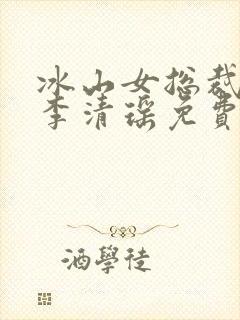 冰山女总裁
李清瑶免费
酒學徒